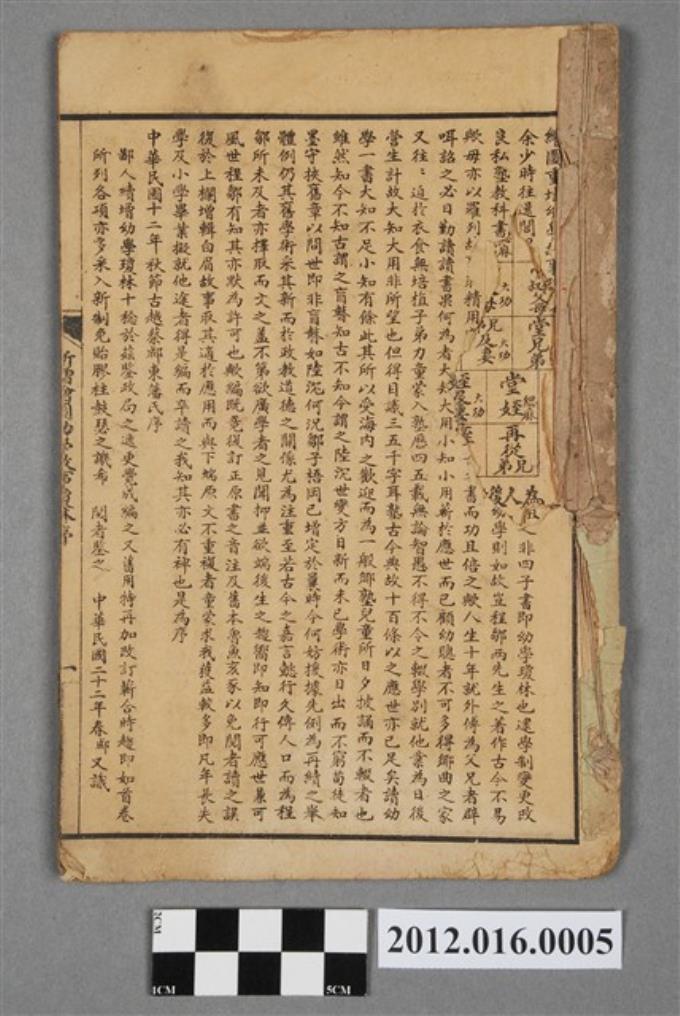 余少時往還間
良私塾教科書
為 之非四子書即幼學瓊林也逮學制變更改
學則如故豈程鄒兩先生之著作古今不易
歟毋亦以羅列 精用
書而功且倍之歟人生十年就外傅為父兄者辟
咡詔之必曰勤讀讀書果何為者大知大用小知小用蘄於應世而已顧幼聰者不可多得鄉曲之家
又往〻迫於衣食無培植子弟力童蒙入塾歷四五載無論智愚不得不令之輟學別就他業為日後
營生計故大知大用非所望也但得目識三五千字耳熟古今典故十百條以之應世亦已足矣請幼
學一書大知不足小知有餘此其所以受海內之歡迎而為一般鄉塾兒童所日夕披誦而不輟者也
雖然知今不知古謂之盲瞽知古不知今謂之陸沉世變方日新而未已學術亦日出而不窮苟徒知
墨守挾舊章以問世即非盲瞽如陸沉何況鄒子梧岡已增定於曩時今何妨援據先例為再續之舉
體例仍其舊學術采其新而於政教道德之關係尤為注重至若古今之嘉言懿行久傳人口而為程
鄒所未及者亦擇取而文之蓋不第欲廣學者之見聞抑並欲端後生之趨嚮即知即行可應世兼可
風世程鄒有知其亦默為許可也歟編既竟復訂正原書之音注及舊本魯魚亥豕以免閱者讀之誤
復於上欄增輯白眉故事取其適於應用而與下端原文不重複者童蒙求我獲益較多即凡年長失
學及小學畢業擬就他途者得是編而卒讀之我知其亦必有裨也是為序
中華民國十二年秋節古越蔡郕東藩氏序
鄙人續增幼學瓊林十稔於茲鑒政局之遞更覺成編之又舊用特再加改訂蘄合時趨即如首卷
所列各項亦多采入新制免貽膠柱鼓瑟之譏希 閱者鑒之 中華民國二十二年春郕又識
叔父母
堂兄弟
大功
兄弟及妻
大功
堂姪
緦麻
大功
再從兄弟
一
2CM
1CM
5CM
2012.016.0005